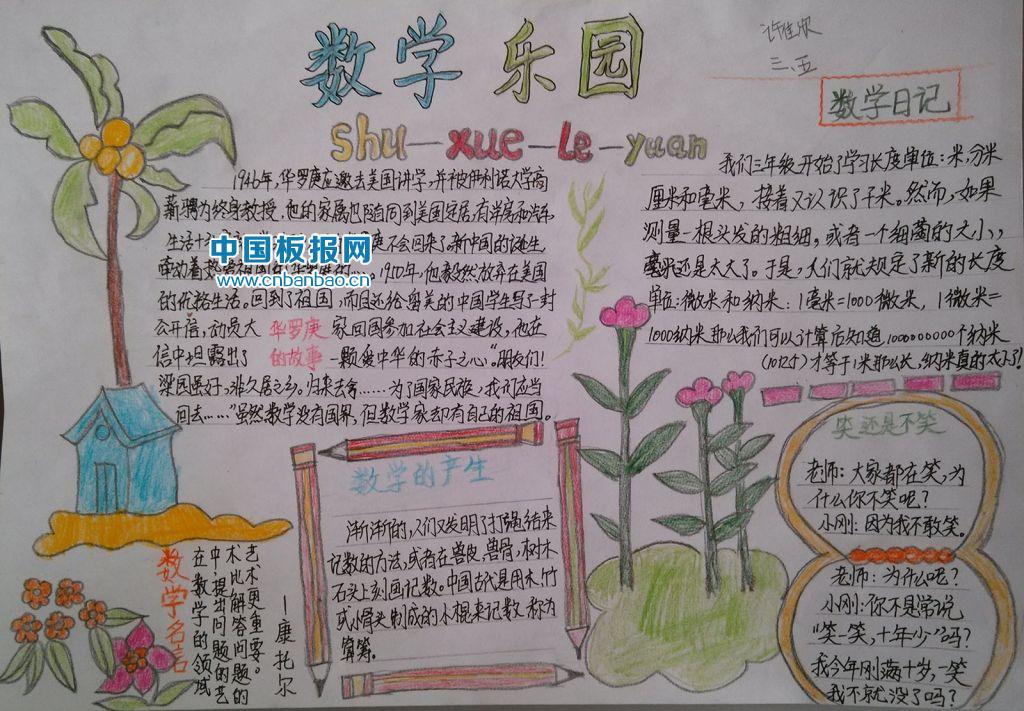 数学乐园
shu—xue—le—yuan
三、五
数学日记
1946年,华罗庚应邀去美国讲学,并被伊利诺大学高
薪聘为终身教授,他的家属也随同到美国定居,有洋房和汽车,
生活十
不会回来了新中国的诞生,
牵动着热爱祖国的华罗庚的…。1950年,他毅然放弃在美国
的优裕生活。回到了祖国,而且还给留美的中国学生写了封
公开信,动员大家回国参加社会主义建设,他在
信中坦露出了一颗爱中华的赤子之心”。朋友们!
梁园虽好,非久居之乡。归来去兮……为了国家民族,我们应当
回去……”虽然数学没有国界,但数学家却有自己的祖国。
华罗庚
的故事
中国板报网
www.cnbanbao.cn
我们三年级开始了学习长度单位:米,分米
厘米和毫米,接着又认识了千米。然而,如果
测量一根头发的粗细,或者一个细菌的大小,
毫米还是太大了。于是,人们就规定了新的长度
单位:微米和纳米:1毫米=1000微米,1微米=
1000纳米那么我们可以计算后知道1000000000个纳米
(10亿)才等于1米那么长,纳米真的太小了!
数学的产生
渐渐的,人们又发明了打绳结来
记数的方法,或者在兽皮,兽骨,树木
石头上刻画记数。中国古代是用木,竹
或骨头制成的小棍来记数,称为
算筹。
数学名言
在数学的领域
中,提出问题的艺
术比解答问题的
艺术更重要。
—康托尔
笑还是不笑
老师:大家都在笑,为
什么你不笑呢?
小刚:因为我不敢笑。
老师:为什么呢?
小刚:你不是常说
“笑一笑,十年少”吗?
我今年刚满十岁,一笑
我不就没了吗?